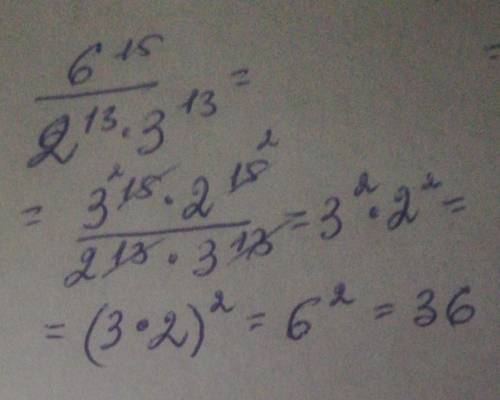 6^15 / (2^13 · 3^13) =
= (3^15^2 · 2^15^2) / (2^13 · 3^13) = 3^2 · 2^2 =
= (3 · 2)^2 = 6^2 = 36